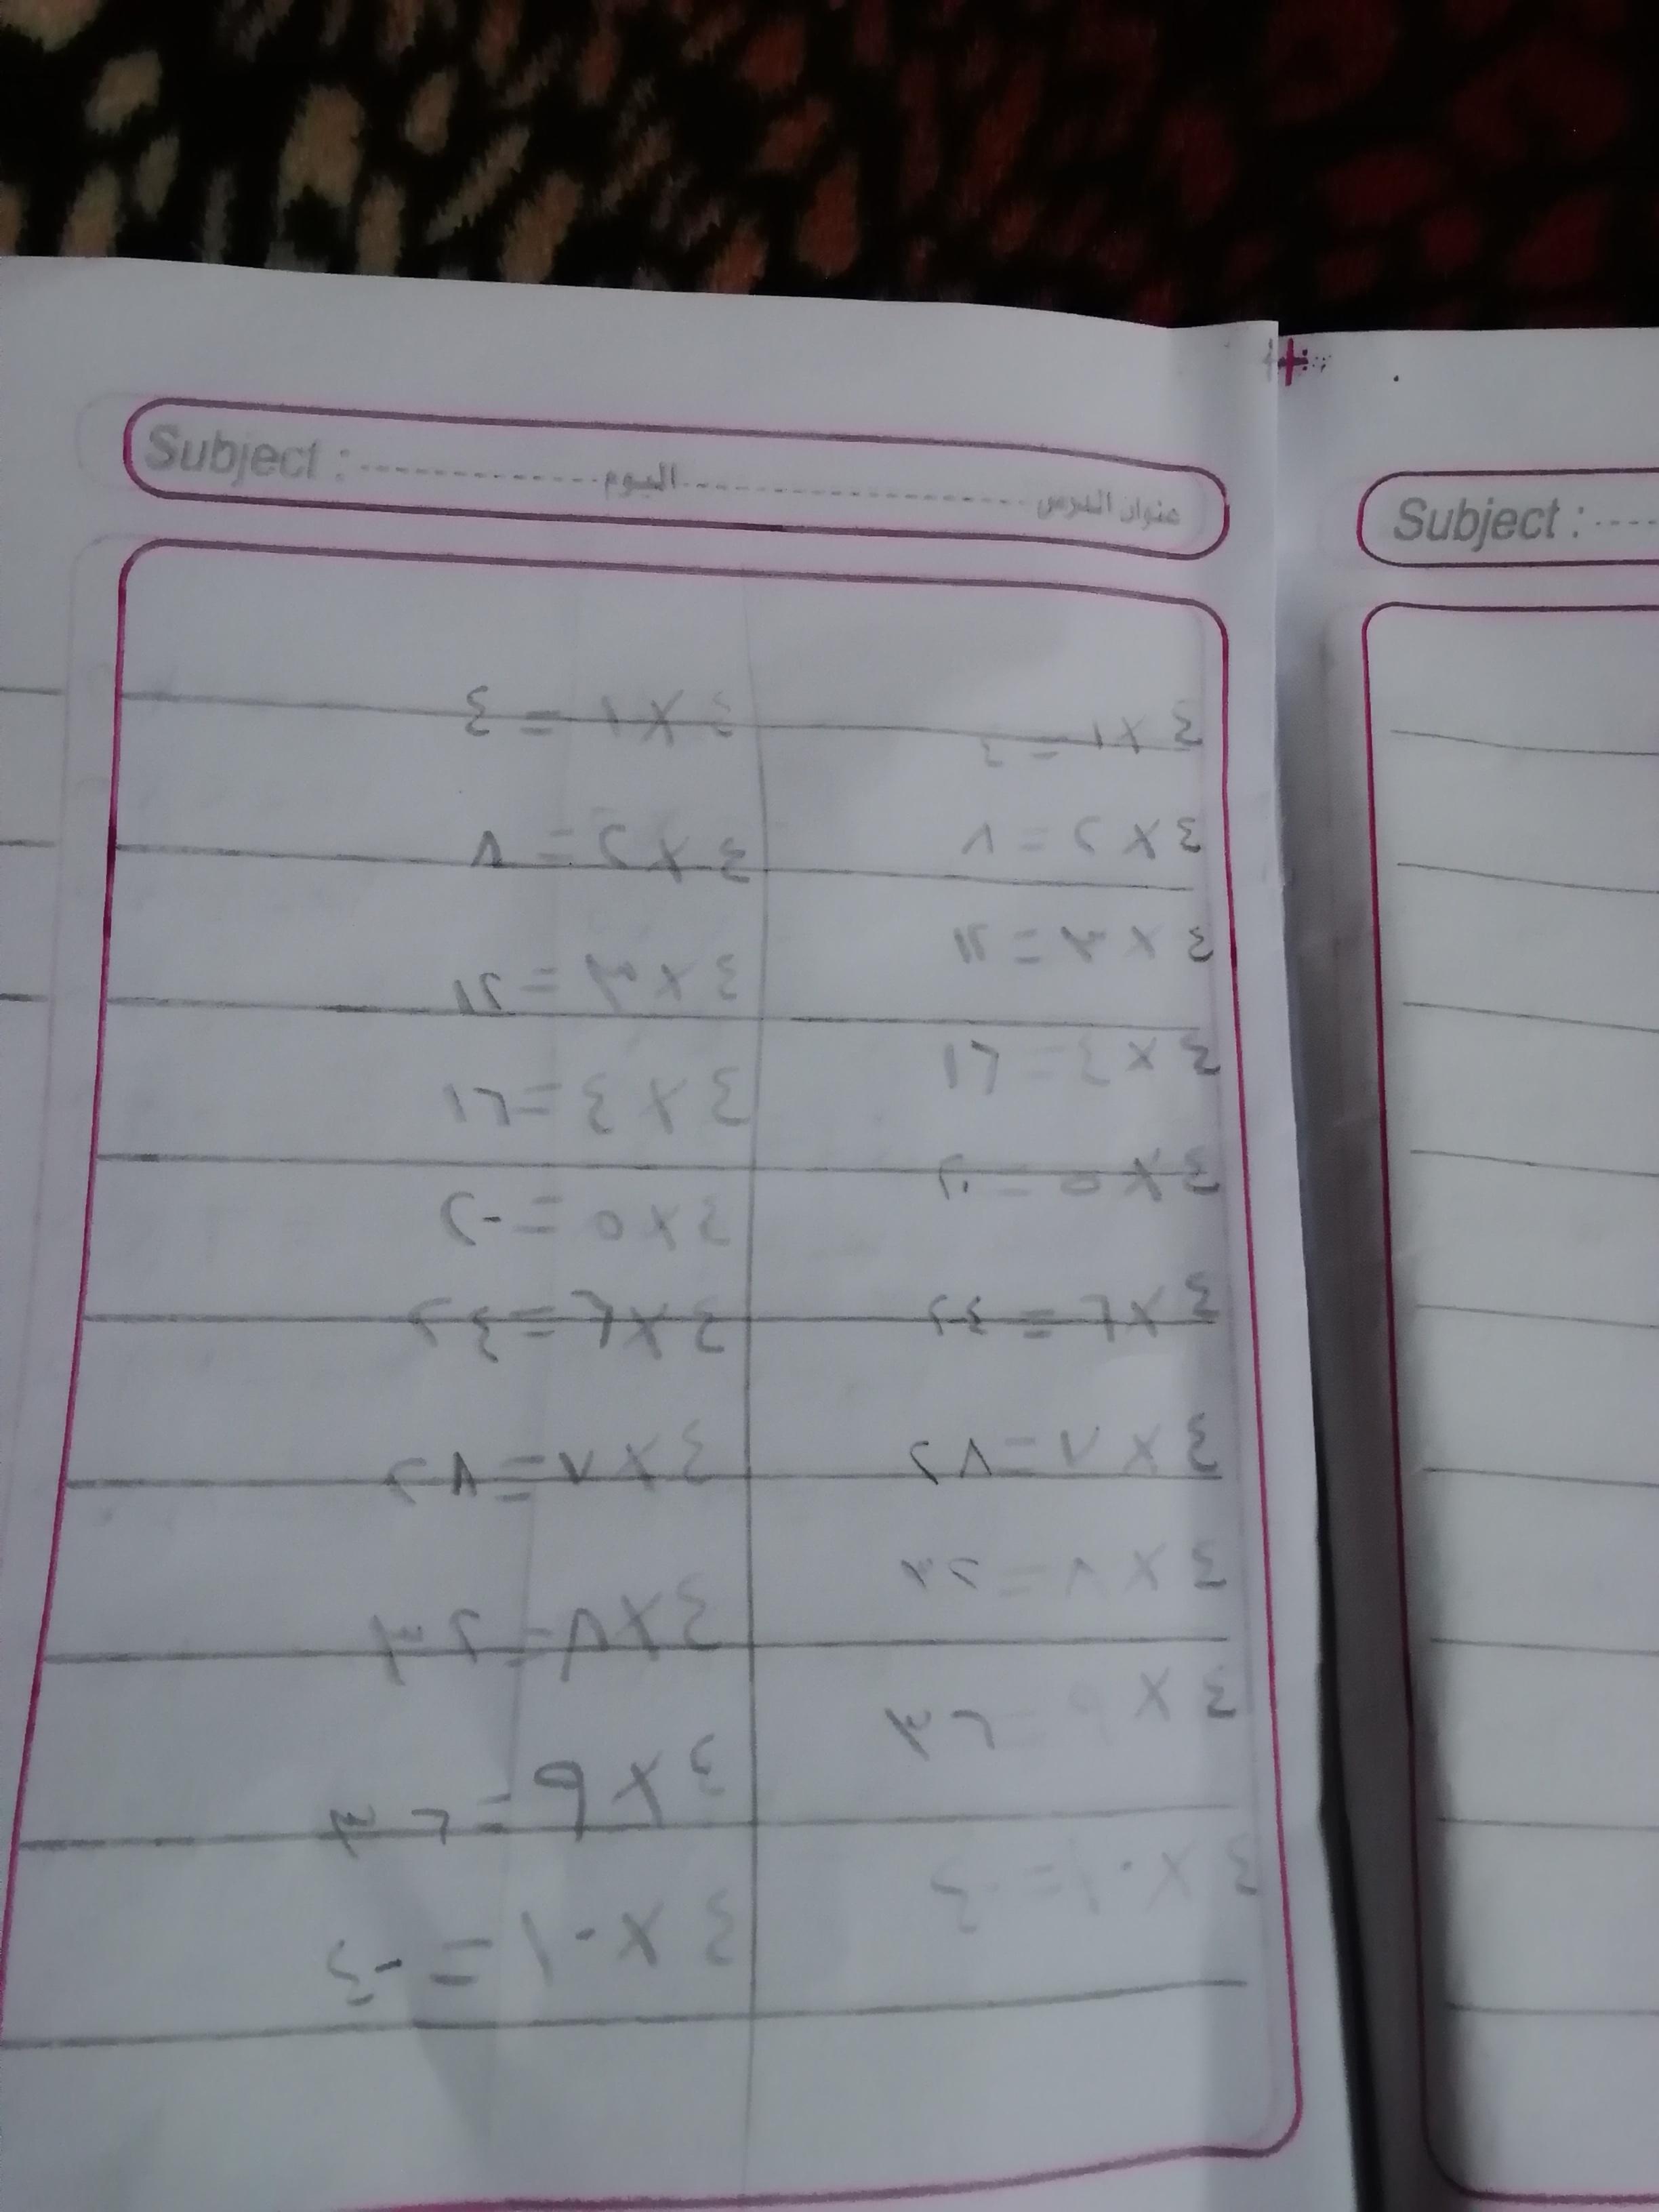 Subject : اليوم عنوان الدرس
٤ × ١ = ٤
٤ × ٢ = ٨
٤ × ٣ = ١٢
٤ × ٤ = ١٦
٤ × ٥ = ٢٠
٤ × ٦ = ٢٤
٤ × ٧ = ٢٨
٤ × ٨ = ٣٢
٤ × ٩ = ٣٦
٤ × ١٠ = ٤٠
٤ × ١ = ٤
٤ × ٢ = ٨
٤ × ٣ = ١٢
٤ × ٤ = ١٦
٤ × ٥ = ٢٠
٤ × ٦ = ٢٤
٤ × ٧ = ٢٨
٤ × ٨ = ٣٢
٤ × ٩ = ٣٦
٤ × ١٠ = ٤٠
Subject :